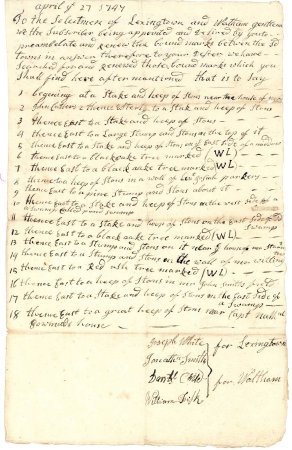 april ye 27 1747
To the Selectmen of Lexingtown and Waltham gentlemen
we the Subscribers being appointed and desired by you to
preambelate and renew the bound marks between the Sd
Towns in answer therefore to your desier we have
Searched for and renewed those bound marks which you
Shall find here after mentioned that is to Say
1 begening at a Stake and heep of Stons near the house of
2 to a Stak and heep of Stons
3 thence East to a Stake and heep of Stons
4 thence East to a Large Stump and Stons on the top of it
5 thence East to a Stake and heep of Stons on ye East Side of a
6 thence East to a black oake tree marked (WL)
7 thence East to a black oake tree marked (WL)
8 thence to a heep of Stons in a wall of parkers
9 thence East to a pine Stump and Stons about it
10 thence East to a Stake and heep of Stons on the west Side of a
swamp Called pond swamp
11 thence East to a Stake and heep of Stons on the East Side of Sd
Swamp
12 thence East to a black oake tree marked (WL)
13 thence East to a Stump and Stons on it near
14 thence East to a Stump and Stons on the wall of
15 thence East to a Red ash tree marked (WL)
16 thence East to a heep of Stons in mr John Smiths field
17 thence East to a Stake and heep of Stons on the East Side of
a Swamp
18 thence East to a great heep of Stons near Capt
house
Joseph White
Jonathan Smith
for Lexingtown
Daniel Child
William Fisk
for Waltham